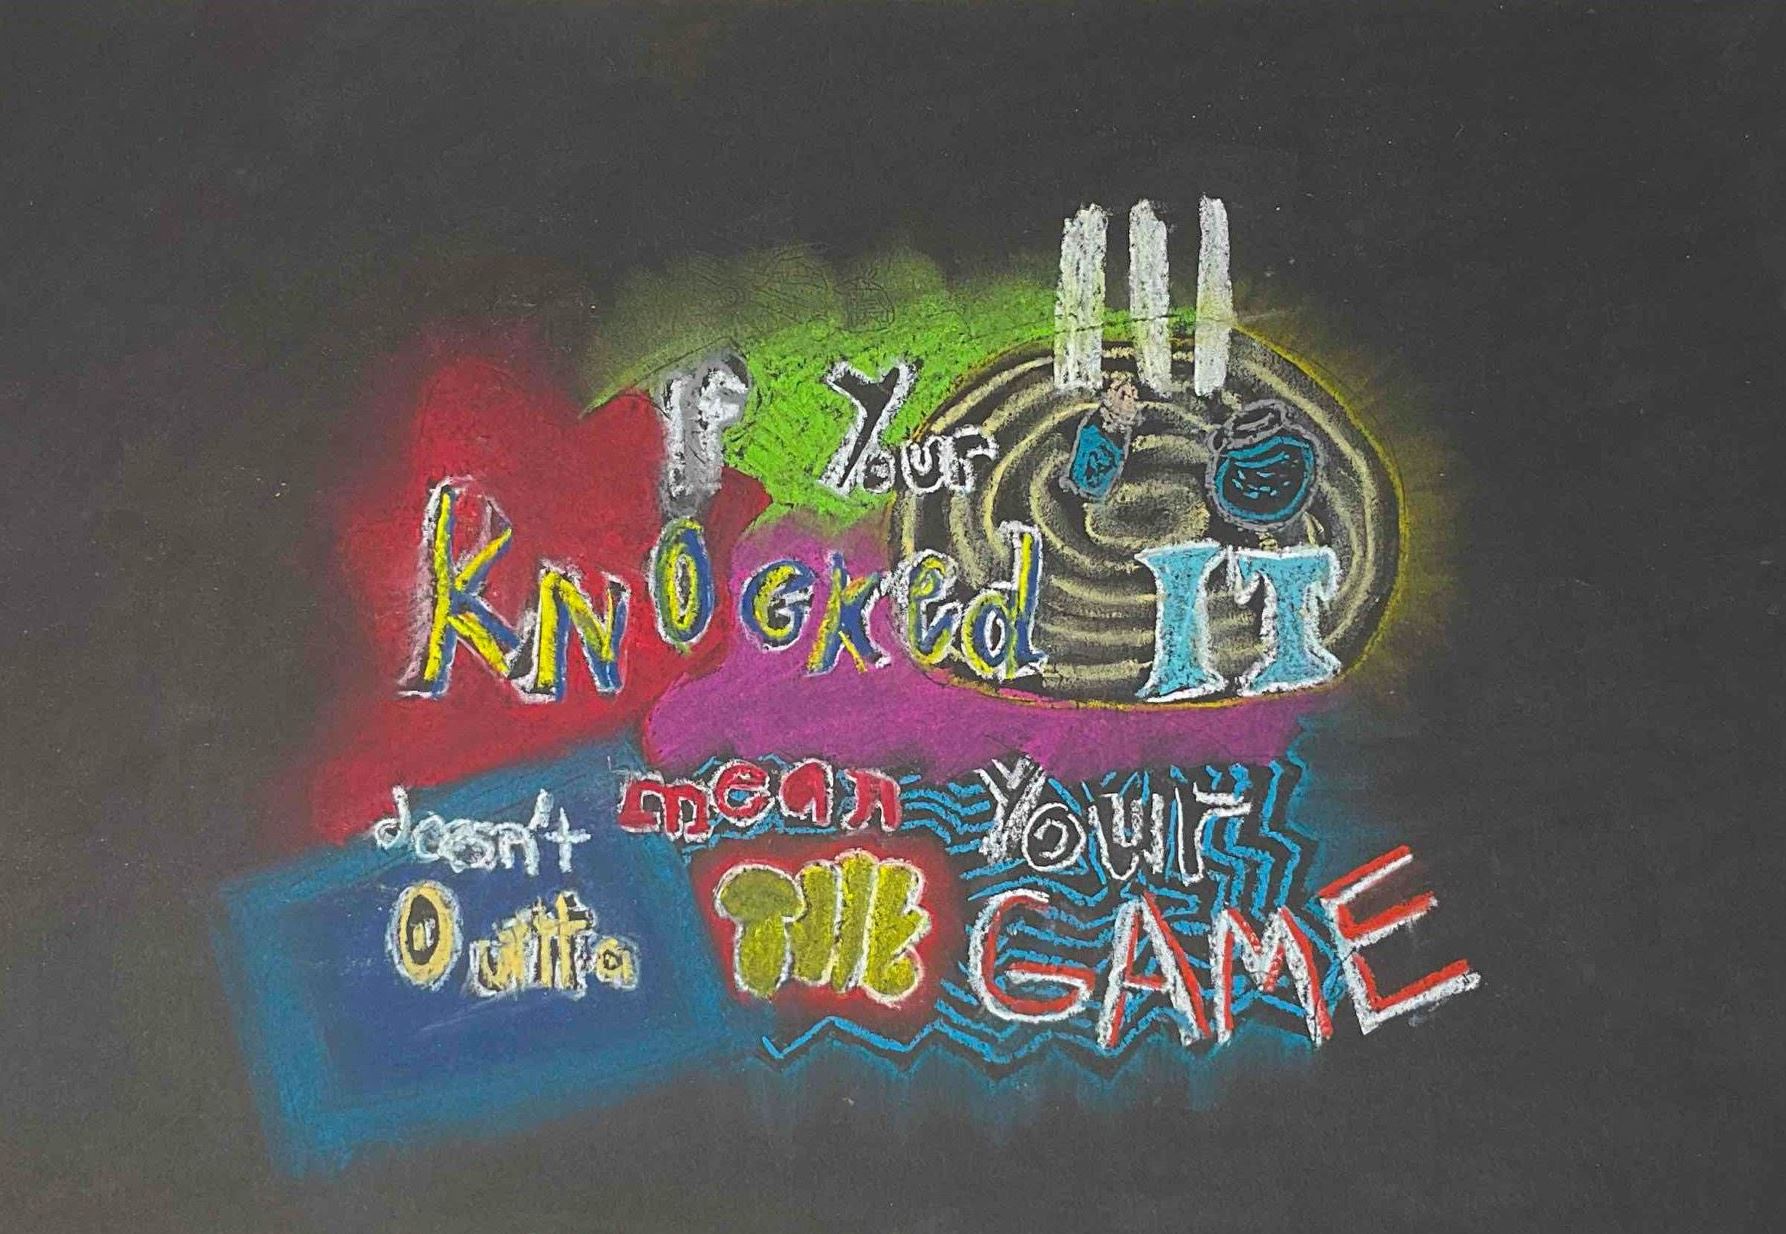 IF Your
KNOcKed IT
doesn't mean Your
Outta THE GAME